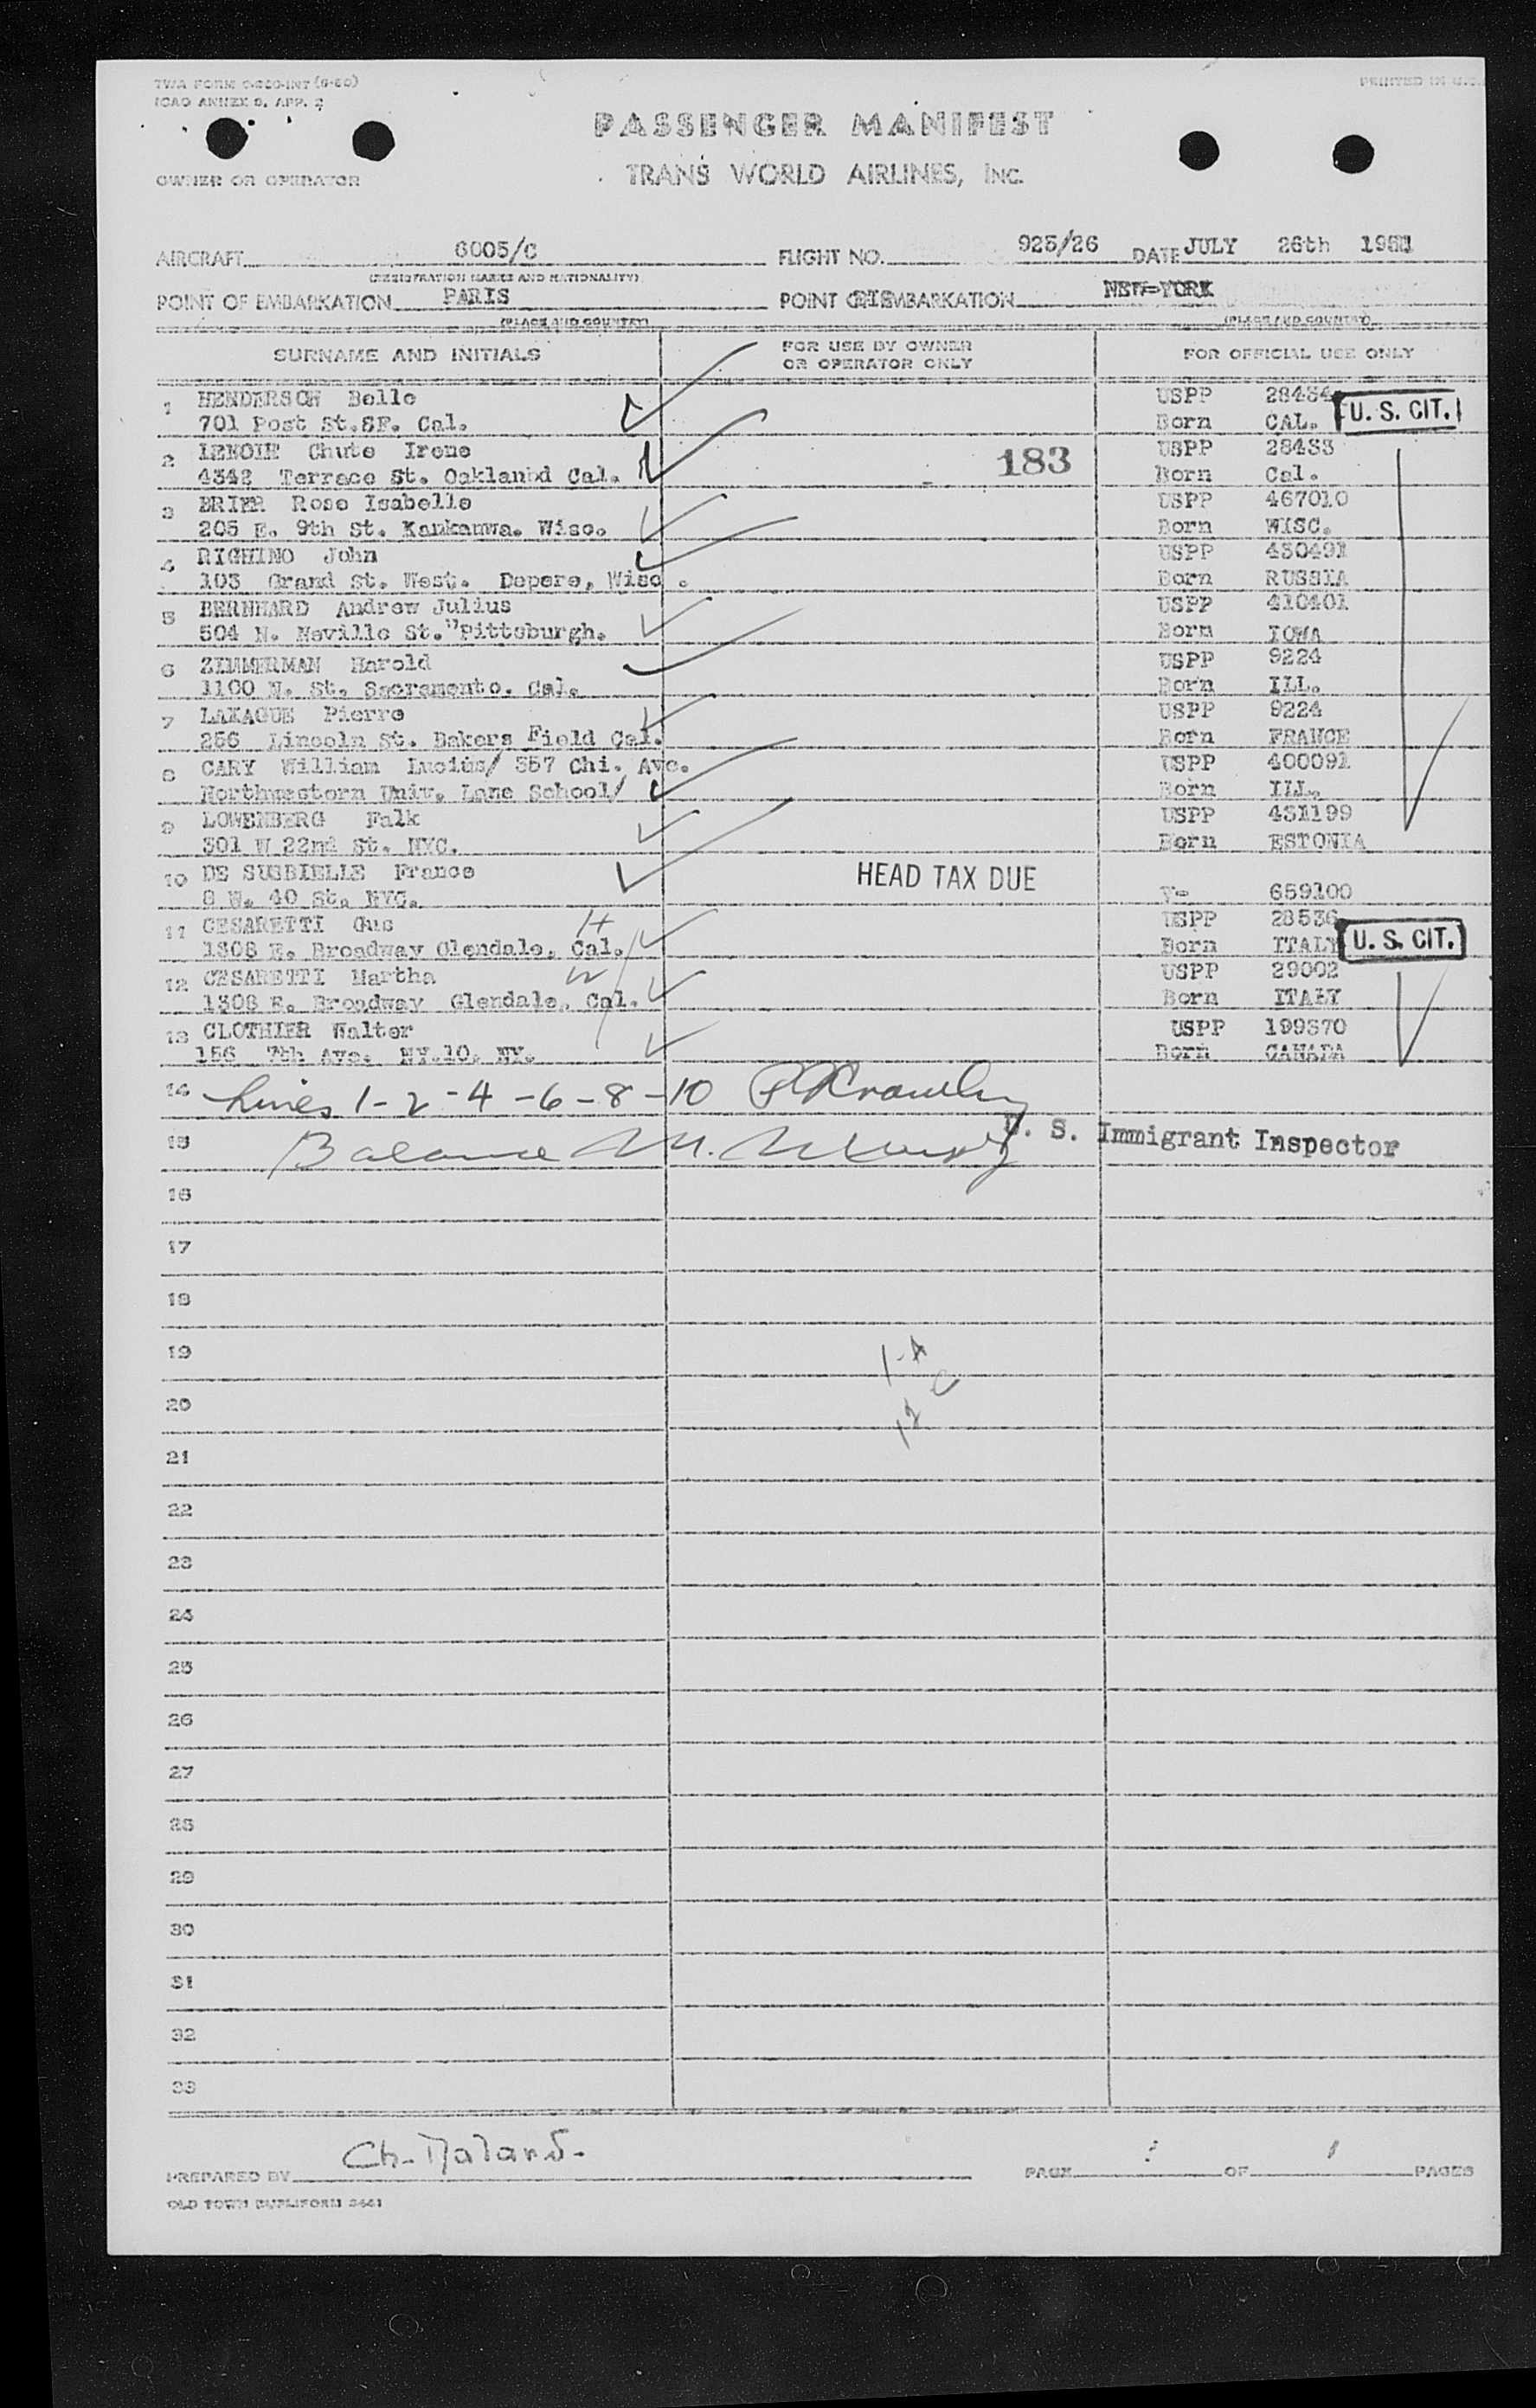 TWA FORM
ICAO ANNEX 9, APP. 2
PRINTED IN U.S.
PASSENGER MANIFEST
OWNER OR OPERATOR
TRANS WORLD AIRLINES, INC.
AIRCRAFT 6005/C FLIGHT NO. 925/26 DATE JULY 26th
(REGISTRATION MARKS AND NATIONALITY)
POINT OF EMBARKATION PARIS POINT DISEMBARKATION NEW-YORK
(PLACE AND COUNTRY) (PLACE AND COUNTRY)
SURNAME AND INITIALS FOR USE BY OWNER OR OPERATOR ONLY FOR OFFICIAL USE ONLY
1 HENDERSON Belle USPP 28484
701 Post St.SF. Cal. Born CAL. U. S. CIT.
2 LENOIR Chute Irene USPP 28483
4342 Terrace St. Oaklanbd Cal. 183 Born Cal.
3 BRIER Rose Isabelle USPP 467010
205 E. 9th St. Kaukauwa. Wisc. Born WISC.
4 RIGHINO John USPP 430491
103 Grand St. West. Depere, Wisc . Born RUSSIA
5 BERNHARD Andrew Julius USPP 410401
504 N. Neville St."Pittsburgh. Born IOWA
6 ZIMMERMAN Harold USPP 9224
1100 N. St. Sacramento. Cal. Born ILL.
7 LAXAGUE Pierre USPP 9224
256 Lincoln St. Bakers Field Cal. Born FRANCE
8 CARY William Lucius/ 357 Chi. Ave. USPP 400091
Northwestern Univ. Lane School/ Born ILL.
9 LOWENBERG Falk USPP 431199
301 W 22nd St. NYC. Born ESTONIA
10 DE SUSBIELLE France HEAD TAX DUE
8 W. 40 St. NYC. V- 659100
11 CESARETTI Gus H USPP 28536
1308 E. Broadway Glendale. Cal. Born ITALY U. S. CIT.
12 CESARETTI Martha W USPP 29002
1308 E. Broadway Glendale. Cal. Born ITALY
13 CLOTHIER Walter USPP 199370
156 7th Ave. NY.10. NY. Born CANADA
14 Lines 1-2-4-6-8-10
15 Balance M. U. S. Immigrant Inspector
16
17
18
19 1-A
20 12 C
21
22
23
24
25
26
27
28
29
30
31
32
33
PREPARED BY Ch. PAGE 1 OF 1 PAGES
OLD TOWN DUPLIFORM